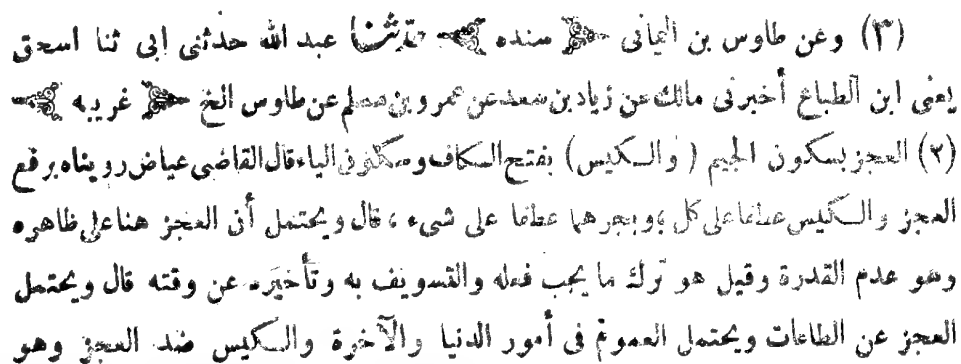 (٣) وعن طاوس بن اليمانى سنده حدثنا عبد الله حدثنى ابى ثنا اسحق
يعنى ابن الطباع أخبرنى مالك عن زياد بن سعد عن عمرو بن مسلم عن طاوس الخ غريبه
(٢) العجز بسكون الجيم (والكيس) بفتح الكاف وسكون الياء قال القاضى عياض رويناه برفع
العجز والكيس عطفا على كل ، وبجرهما عطفا على شىء ، قال ويحتمل أن العجز هنا على ظاهره
وهو عدم القدرة وقيل هو ترك ما يجب فعله والتسويف به وتأخيره عن وقته قال ويحتمل
العجز عن الطاعات ويحتمل العموم فى أمور الدنيا والآخرة والكيس ضد العجز وهو